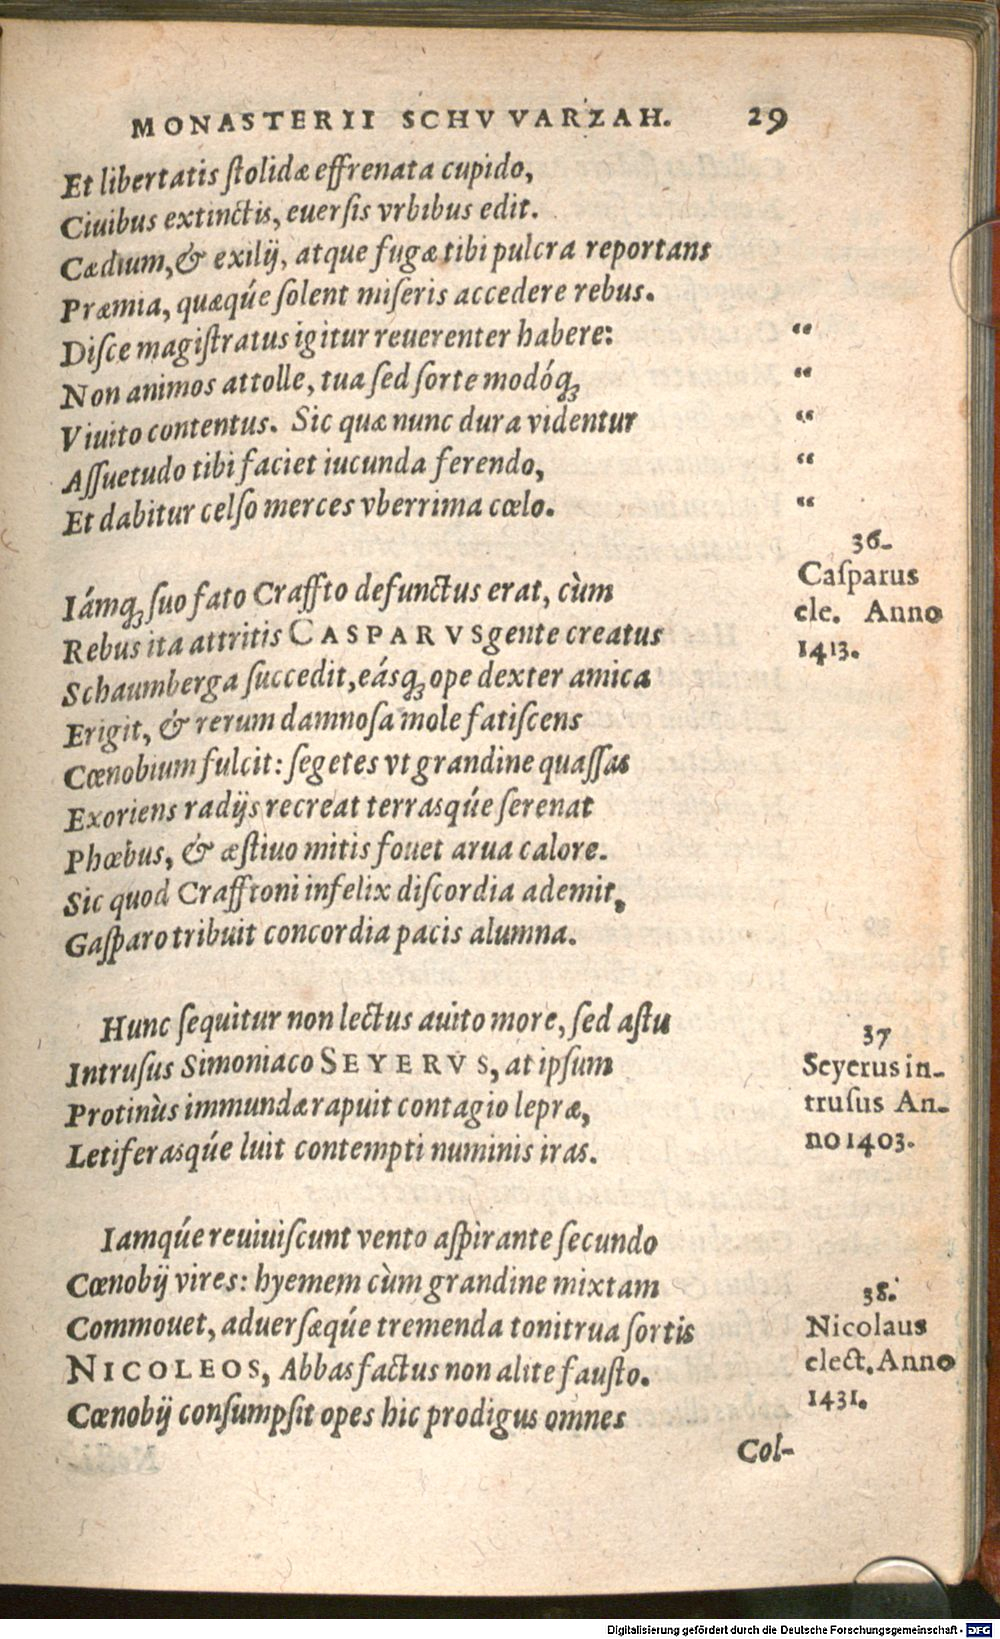 MONASTERII SCHVVVARZAH. 29
Et libertatis ſtolidæ effrenata cupido,
Ciuibus extinctis, euerſis vrbibus edit.
Cædium, & exilij, atque fugæ tibi pulcra reportans
Præmia, quæqúe ſolent miſeris accedere rebus.
Diſce magiſtratus igitur reuerenter habere: “
Non animos attolle, tua ſed ſorte modóq́; “
Viuito contentus. Sic quæ nunc dura videntur “
Aſſuetudo tibi faciet iucunda ferendo, “
Et dabitur celſo merces vberrima cœlo. “
36.
Caſparus
ele. Anno
1413.
Iámq; ſuo fato Craffto defunctus erat, cùm
Rebus ita attritis CASPARVS gente creatus
Schaumberga ſuccedit, eásq; ope dexter amica
Erigit, & rerum damnoſa mole fatiſcens
Cœnobium fulcit: ſegetes vt grandine quaſſas
Exoriens radijs recreat terrasqúe ſerenat
Phœbus, & æſtiuo mitis fouet arua calore.
Sic quod Crafftoni infelix diſcordia ademit,
Gaſparo tribuit concordia pacis alumna.
37
Seyerus in-
truſus An-
no 1403.
Hunc ſequitur non lectus auito more, ſed aſtu
Intruſus Simoniaco SEYERVS, at ipſum
Protinùs immundæ rapuit contagio lepræ,
Letiferasqúe luit contempti numinis iras.
Iamqúe reuiuiſcunt vento aſpirante ſecundo
Cœnobij vires: hyemem cùm grandine mixtam
Commouet, aduerſæqúe tremenda tonitrua ſortis
NICOLEOS, Abbas factus non alite fauſto.
Cœnobij conſumpſit opes hic prodigus omnes
38.
Nicolaus
elect. Anno
1431.
Col-
Digitalisierung gefördert durch die Deutsche Forschungsgemeinschaft - DFG